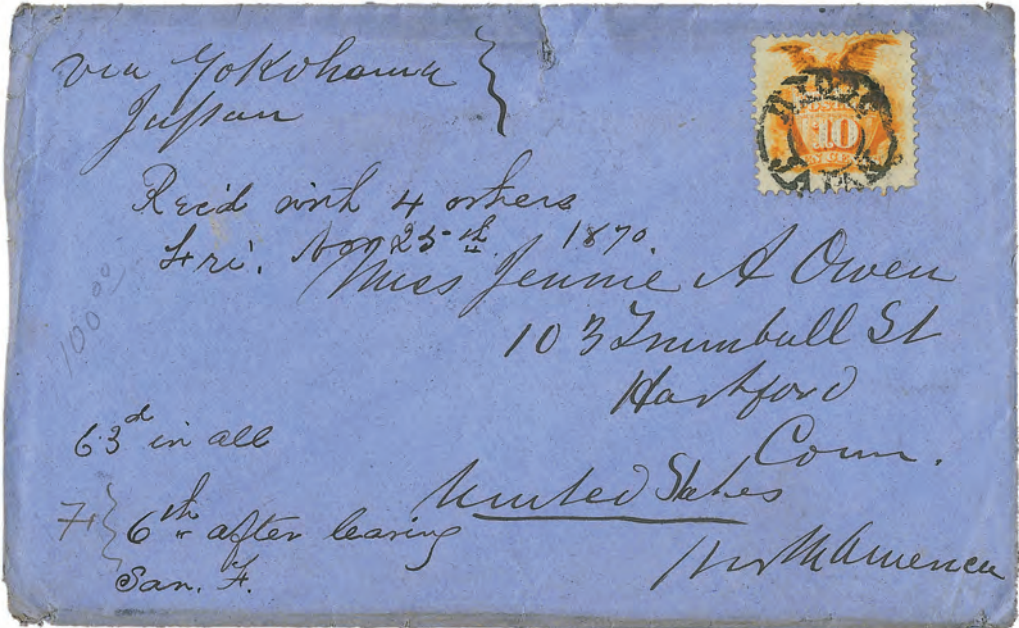 via Yokohama
Japan
Rec'd with 4 others
Fri. Nov 25th 1870.
Miss Jennie A Owen
103 Trumbull St
Hartford
Conn.
United States
North America
63d in all
6th after leaving
San. F.
100 00
10